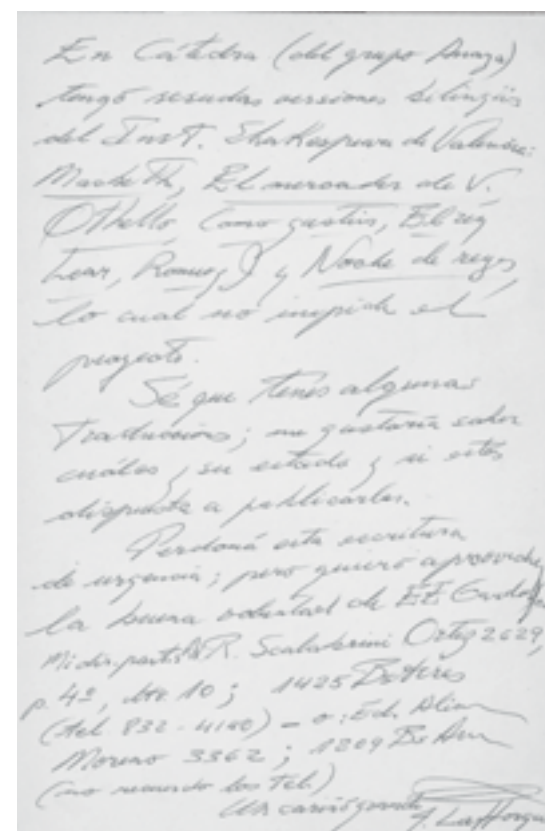 En Cátedra (del grupo Anaya)
tengo sesudas versiones bilingües
del Inst. Shakespeare de Valencia:
Macbeth, El mercader de V.
Othello, Como gustéis, El rey
Lear, Romeo y J y Noche de reyes,
lo cual no impide el
proyecto.
Sé que tenés algunas
traducciones; me gustaría saber
cuáles, su estado y si estás
dispuesta a publicarlas.
Perdoná esta escritura
de urgencia; pero quiero aprovechar
la buena voluntad de EE
Mi dir. partic. R. Scalabrini Ortiz 2629,
p. 4º, dto. 10; 1425 Bs Aires
(tel. 832-4140) - o: Ed. Alian
Moreno 3362; 1209 Bs As
(no recuerdo los tel.)
Un cariño grande
J. Lafforgue